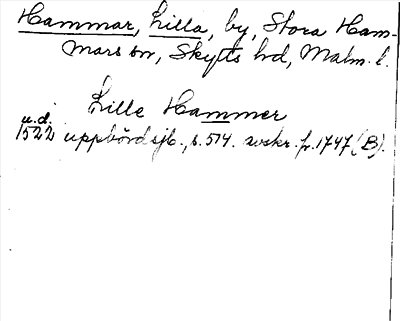 Hammar, Lilla, by, Stora Ham-
mars sn, Skytts hd, Malm. l.
Lille Hammer
u.d.
1522 uppbördsjb., s. 574. avskr. fr. 1747 (B).